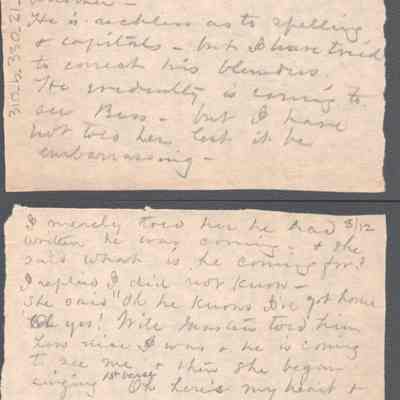 He is reckless as to spelling
& capitals – but I have tried
to correct his blunders.
He evidently is coming to
see Bess – but I have
not told her lest it be
embarrassing –
I merely told her he had 3/12
written he was coming. & she
said what is he coming for?
I replied I did not know –
She said "Oh he knows I've got home
Oh yes! Will told him
how nice I was & he is coming
to see me & then she began
singing 1st verse "Oh here's my heart &